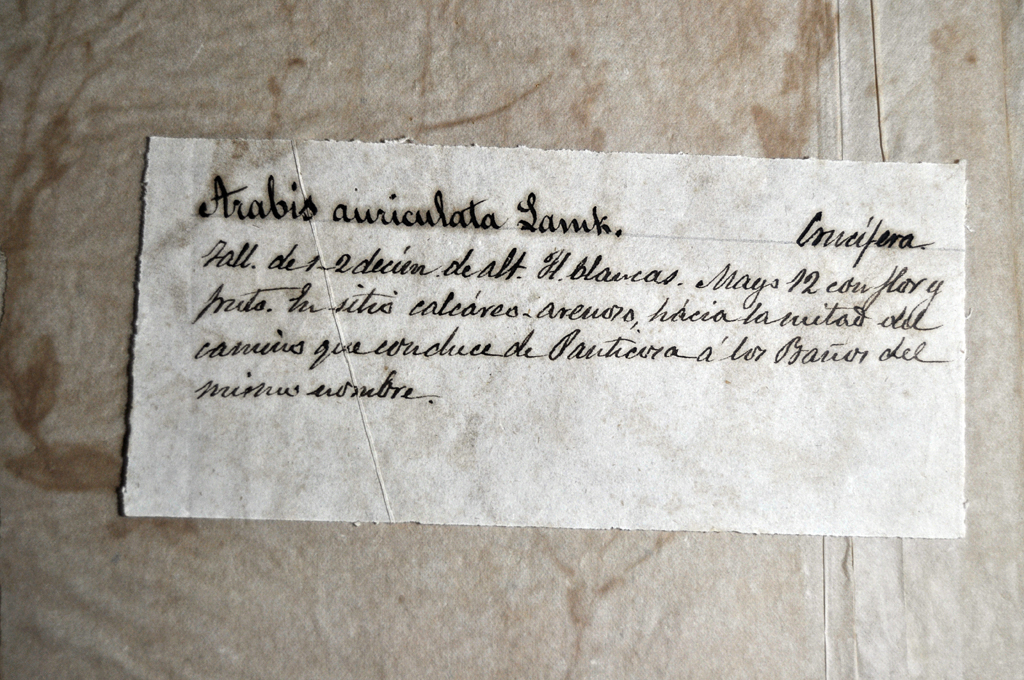 Arabis auriculata Lamk. Crucífera
Tall. de 1-2 decím. de alt. Fl. blancas. Mayo 12 con flor y
fruto. En sitio calcáreo-arenoso, hácia la mitad del
camino que conduce de Panticosa á los Baños del
mismo nombre.